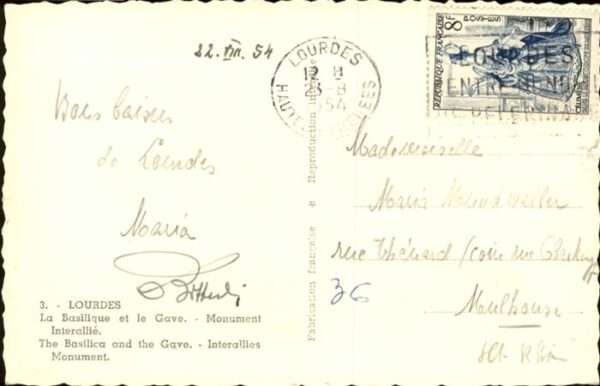 22.VIII.54
Bons baisers
de Lourdes
Maria
3. - LOURDES
La Basilique et le Gave. - Monument
Interallié.
The Basilica and the Gave. - Interallies
Monument.
Fabrication française • Reproduction interdite
LOURDES
12 H
23 - 8
1954
HAUTES PYRENEES
8F
POSTES
REPUBLIQUE FRANÇAISE
LOURDES
CENTRE
PELERINAGE
Mademoiselle
Maria
rue Thénard (coin rue
36
Mulhouse
Ht Rhin